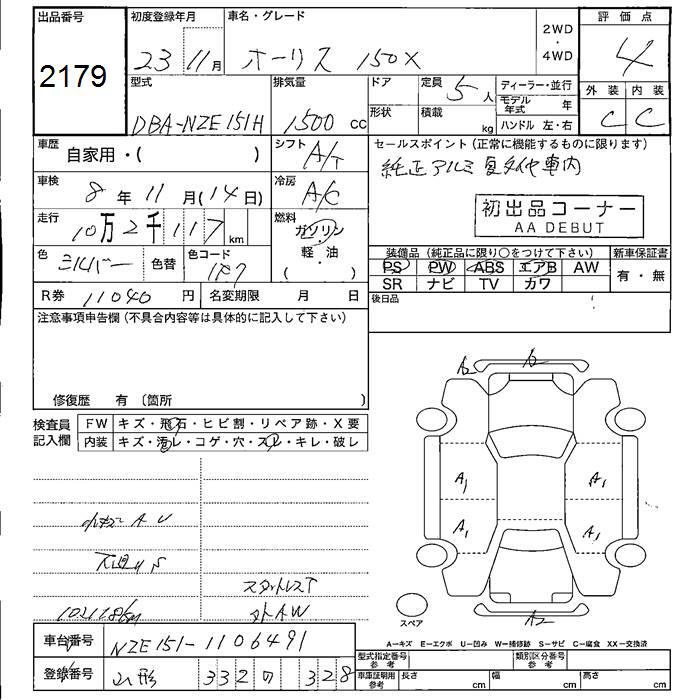 出品番号
2179
初度登録年月
23 11月
車名・グレード
オーリス 150X
2WD
・
4WD
評価点
4
外装 内装
C C
型式
DBA-NZE151H
排気量
1500 cc
ドア
形状
定員 5人
積載 kg
ディーラー・並行
モデル年式 年
ハンドル 左・右
車歴 自家用・( )
シフト A/T
セールスポイント(正常に機能するものに限ります)
純正アルミ 夏タイヤ車内
車検 8年11月(14日)
冷房 A/C
初出品コーナー
AA DEBUT
走行 10万2千117 km
燃料
ガソリン
・
軽・油
( )
色 シルバー 色替
色コード 1F7
装備品(純正品に限り○をつけて下さい)
PS PW ABS エアB AW
SR ナビ TV カワ
新車保証書
有・無
R券 11040 円
名変期限 月 日
後日品
注意事項申告欄(不具合内容等は具体的に記入して下さい)
修復歴 有 〔箇所 〕
検査員記入欄
FW キズ・飛石・ヒビ割・リペア跡・X要
内装 キズ・汚レ・コゲ・穴・スレ・キレ・破レ
小キズ A U
下廻り S
スタットレスT
外AW
A2 A2
A1 A1
A1 A1
A2
スペア
A−キズ E−エクボ U−凹み W−補修跡 S−サビ C−腐食 XX−交換済
車台番号 NZE151-1106491
登録番号 山形 332 の 328
型式指定番号
参考
類別区分番号
参考
車庫証明用
参考
長さ cm 幅 cm 高さ cm